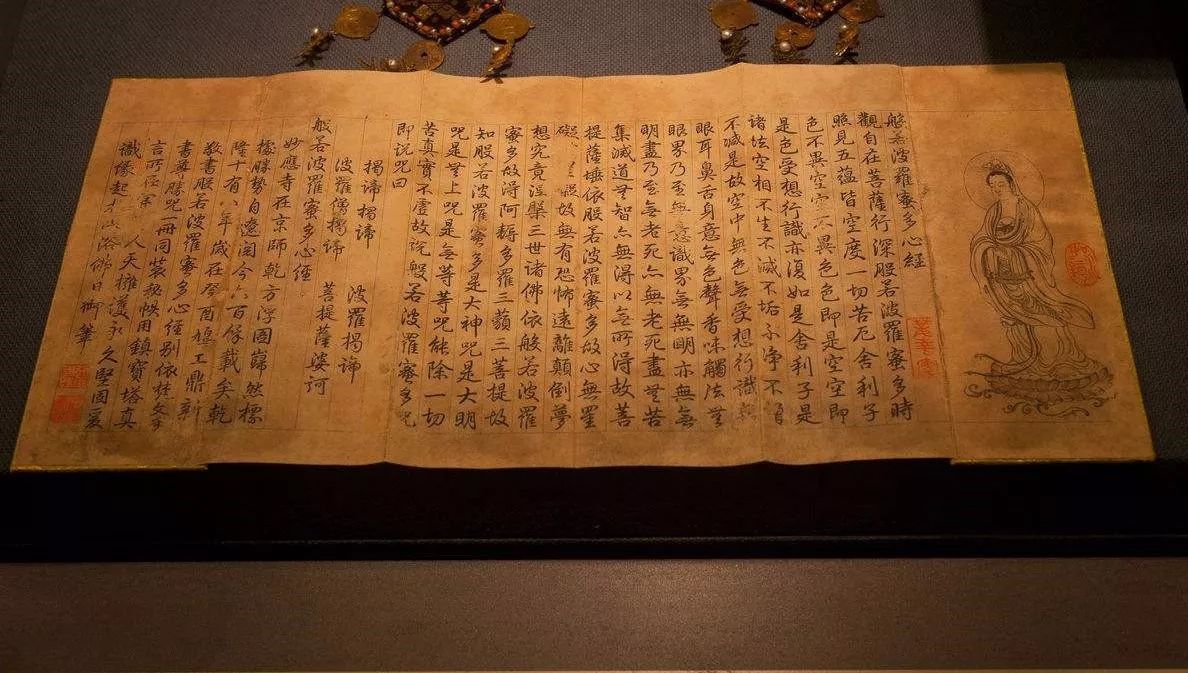 般若波羅蜜多心經
觀自在菩薩行深般若波羅蜜多時
照見五蘊皆空度一切苦厄舍利子
色不異空空不異色色即是空空即
是色受想行識亦復如是舍利子是
諸法空相不生不滅不垢不淨不
不減是故空中無色無受想行識無
眼耳鼻舌身意無色聲香味觸法無
眼界乃至無意識界無無明亦無無
明盡乃至無老死亦無老死盡無苦
集滅道無智亦無得以無所得故菩
提薩埵依般若波羅蜜多故心無罣
礙罣礙故無有恐怖遠離顛倒夢
想究竟涅槃三世諸佛依般若波羅
蜜多故得阿耨多羅三藐三菩提故
知般若波羅蜜多是大神咒是大明
咒是無上咒是無等等咒能除一切
苦真實不虛故說般若波羅蜜多咒
即說咒曰
揭諦揭諦 波羅揭諦
波羅僧揭諦 菩提薩婆訶
般若波羅蜜多心經
妙應寺在京師乾方浮圖巋然標
據勝勢自遼閱今六百餘載矣乾
隆十有八年歲在癸酉鳩工鼎新
敬書般若波羅蜜多心經別依梵文
書尊勝咒一冊同裝帙用鎮寶塔真
言所在人天擁護永久堅固爰
識緣起浴佛日御筆